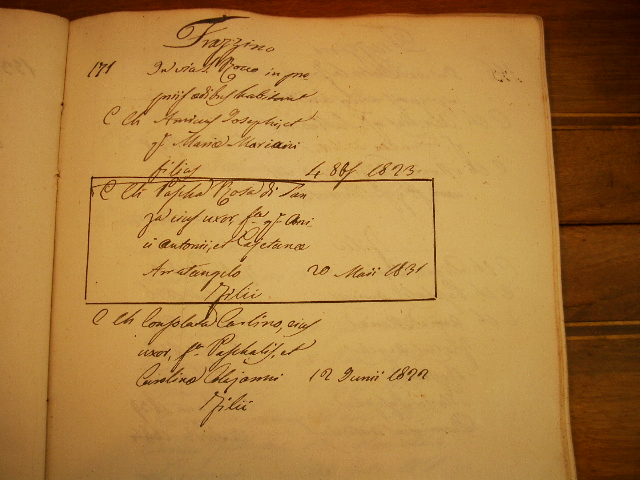 Frazzino
171 In via S. Rocco in pro
priis ædibus habitant
C Ch Amicus Joseph, et
qm Mariæ Mariani
filius 4 8bris 1823
C Ch Pascha Rosa di San
za eius uxor, fa qm
ii Antonii, et Cajetanæ
Arcatangelo 20 Maii 1831
Filii
C Ch Consolata Carlino, eius
uxor, fa Paschalis, et
Carolinæ 12 Junii 1822
Filii